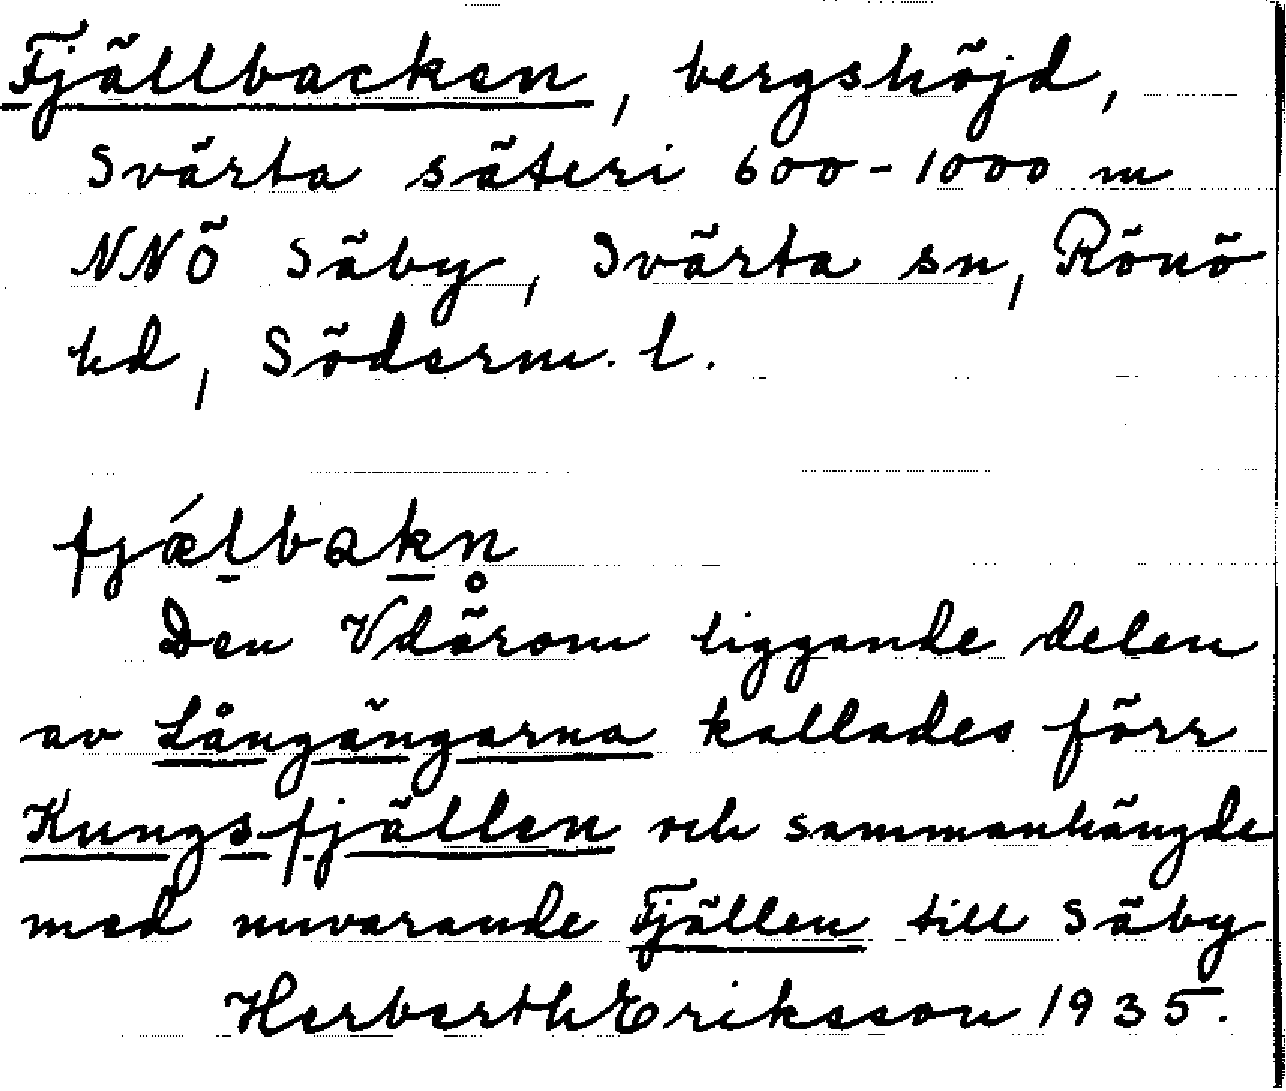 Fjällbacken, bergshöjd,
Svärta säteri 600-1000 m
NNÖ Säby, Svärta sn, Rönö
hd, Söderm. l.
fjǽl̠bɑk̠n̥
Den V därom liggande delen
av Långängarna kallades förr
Kungsfjällen och sammanhängde
med nuvarande Fjällen till Säby
Herberth Eriksson 1935.